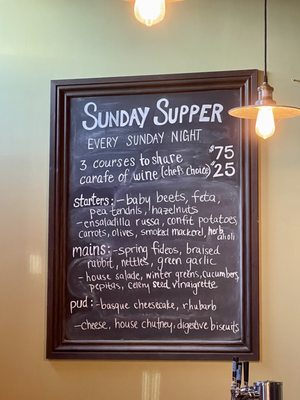 SUNDAY SUPPER
EVERY SUNDAY NIGHT
3 courses to share $75
carafe of wine (chef's choice) $25
starters: - baby beets, feta,
pea tendrils, hazelnuts
- ensaladilla russa, confit potatoes,
carrots, olives, smoked mackerel, herb
aioli
mains: - spring fideos, braised
rabbit, nettles, green garlic
- house salade, winter greens, cucumbers,
pepitas, celery seed vinaigrette
pud: - basque cheesecake, rhubarb
- cheese, house chutney, digestive biscuits